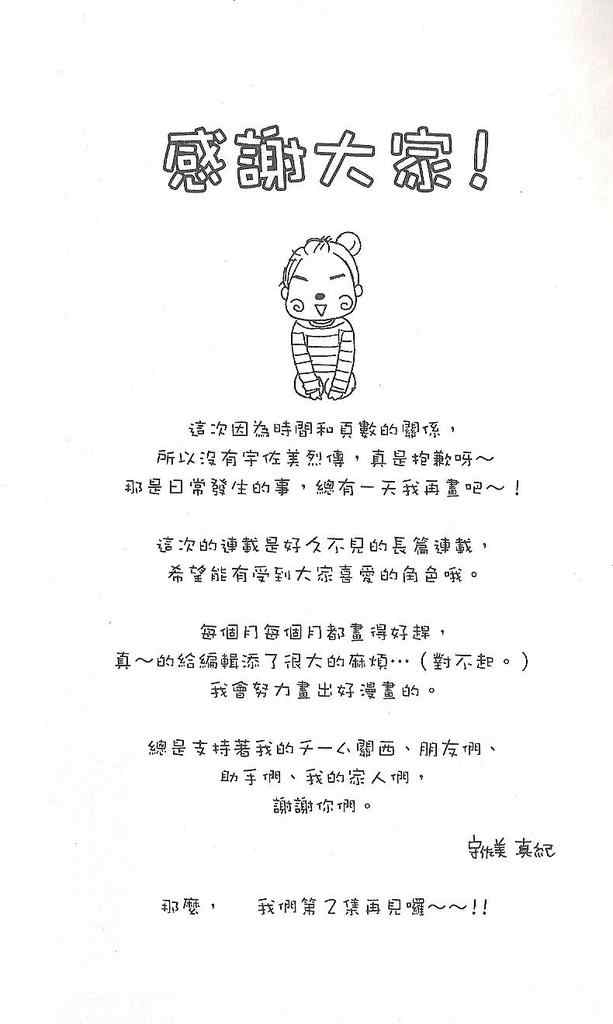 感謝大家!
這次因為時間和頁數的關係，
所以沒有宇佐美烈傳，真是抱歉呀～
那是日常發生的事，總有一天我再畫吧～！
這次的連載是好久不見的長篇連載，
希望能有受到大家喜愛的角色哦。
每個月每個月都畫得好趕，
真～的給編輯添了很大的麻煩…（對不起。）
我會努力畫出好漫畫的。
總是支持著我的チーム關西、朋友們、
助手們、我的家人們，
謝謝你們。
宇佐美 真紀
那麼，　我們第2集再見囉～～!!